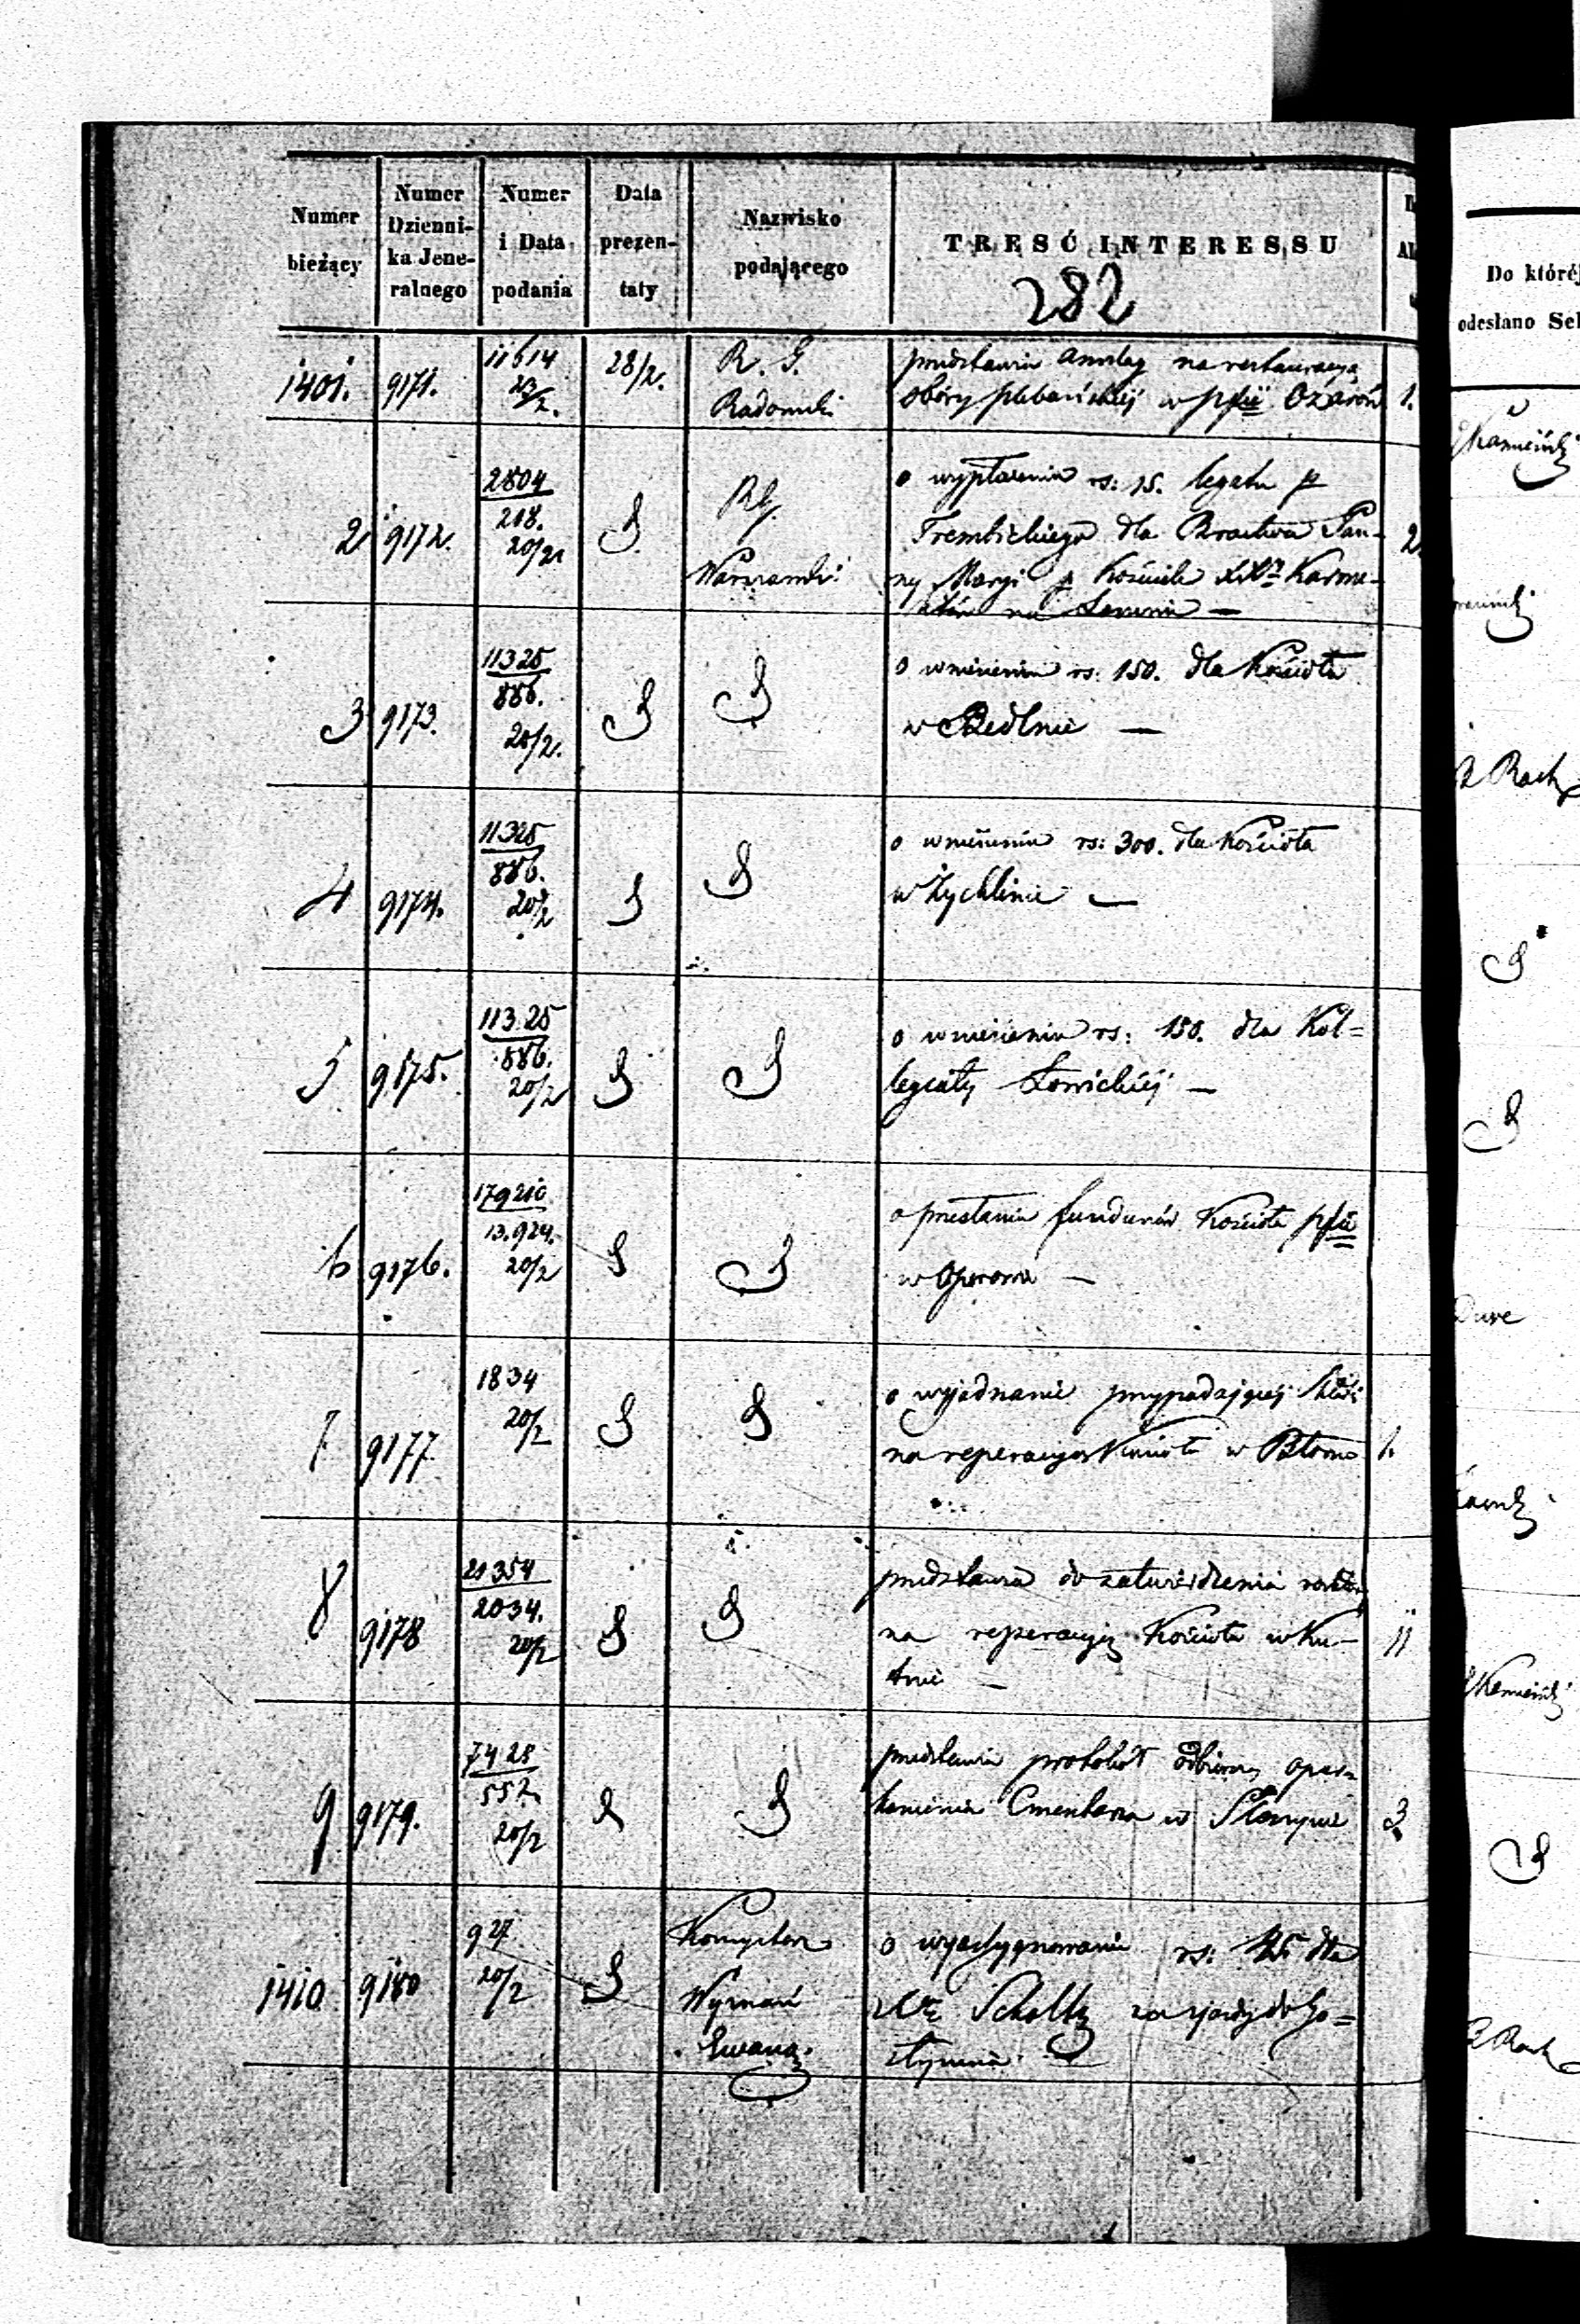 Numer bieżący
Numer Dzienni-ka Jene-ralnego
Numer i Data podania
Data prezen-taty
Nazwisko podającego
TREŚĆ INTERESSU
282
Do któréj
odesłano
1401. 9171. 11614 23/2. 28/2. R. G. Radomski
na restauracyą
obory plebańskiej w pfii Ożarów 1.
2 9172. 2804 218. 20/2 S. RG. Warszawski
o wypłacenie rs: 15. legatu p
Trembickiego dla Bractwa Pan-
ny Maryi p Kościele XXów Karme-
litów na Lesznie — 2
3 9173. 11325 886. 20/2. S S
o wniesienie rs: 150. dla Kościoła
w Bedlnie —
4 9174. 11325 886. 20/2 S S
o wniesienie rs: 300. dla Kościoła
w Żychlinie —
5 9175. 11325 886. 20/2 S S
o wniesienie rs: 150. dla Kol=
legiaty Łowickiéj —
6 9176. 179210 13.924. 20/2 S S
o przesłanie funduszów Kościoła pfii
w Oporowie —
7 9177 1834 20/2 S S
o wyjednanie przypadającej
na reperacyą Kościoła w Błoniu 1.
8 9178 21354 2034. 20/2 S S
przedstawia do zatwierdzenia
na reperacyję Kościoła w Ku-
tnie — 11
9 9179. 7428 552. 20/2 S S
przedstawia protokół odbiorczy opar-
kanienia Cmentarza w 3
1410 9180 927 20/2 S
Konsystorz Wyznań Ewang.
o wyasygnowanie rs: dla
Scholtz za zjazdy do Go=
stynina
Kamieński
R Rach
S
S
Kamieński
S
R Rach